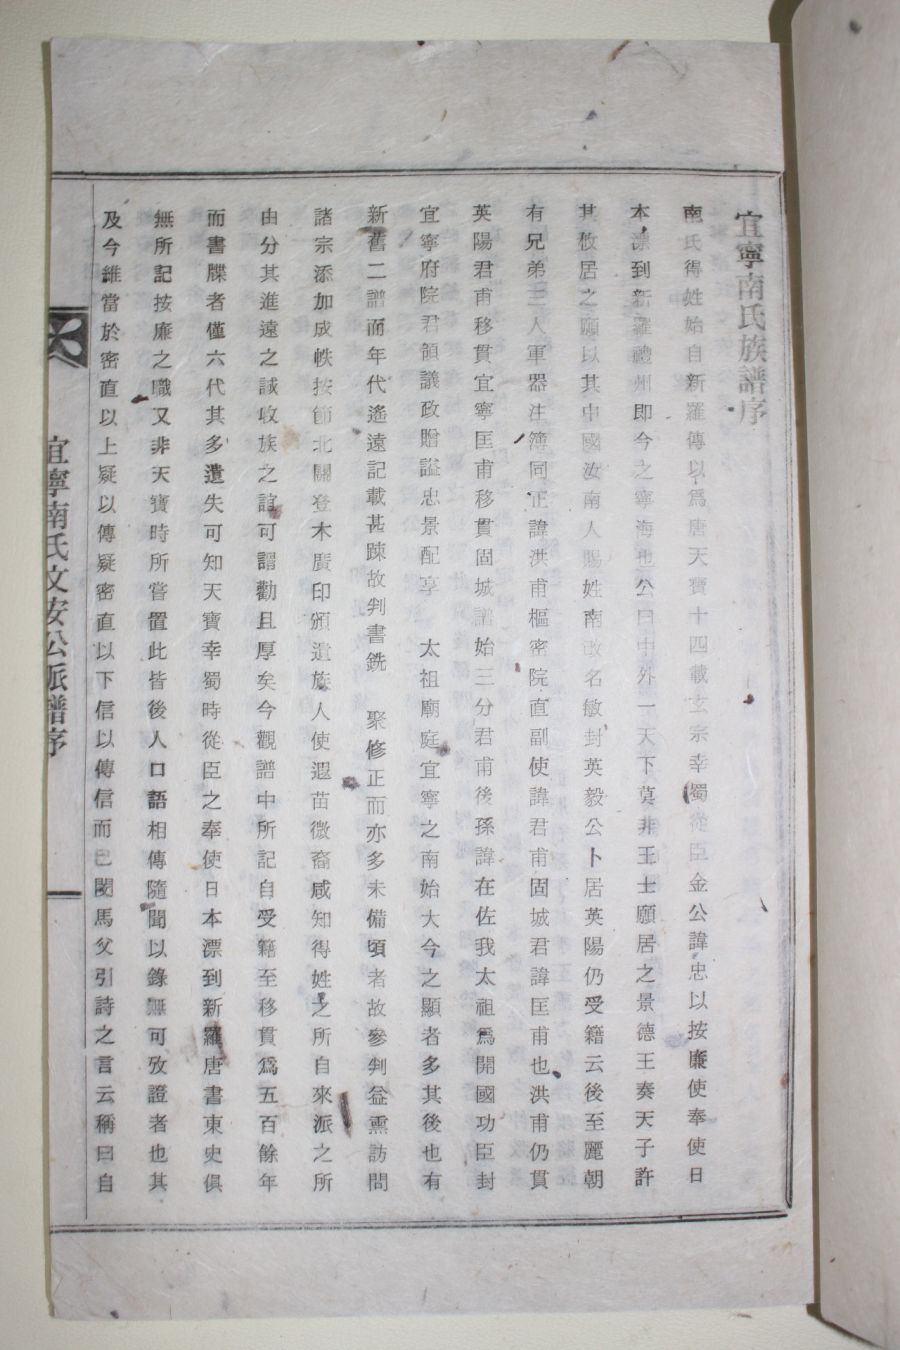 宜寧南氏族譜序
南氏得姓始自新羅傳以爲唐天寶十四載玄宗幸蜀從臣金公諱忠以按廉使奉使日
本漂到新羅禮州即今之寧海也公曰中外一天下莫非王土願居之景德王奏天子許
其攸居之願以其中國汝南人賜姓南改名敏封英毅公卜居英陽仍受籍云後至麗朝
有兄弟三人軍器注簿同正諱洪甫樞密院直副使諱君甫固城君諱匡甫也洪甫仍貫
英陽君甫移貫宜寧匡甫移貫固城譜始三分君甫後孫諱在佐我太祖爲開國功臣封
宜寧府院君領議政贈謚忠景配享 太祖廟庭宜寧之南始大今之顯者多其後也有
新舊二譜而年代遙遠記載甚踈故判書銑 聚修正而亦多未備頃者故參判益熏訪問
諸宗添加成帙按節北關登木廣印頒遺族人使遐苗微裔咸知得姓之所自來派之所
由分其進遠之誠收族之誼可謂勸且厚矣今觀譜中所記自受籍至移貫爲五百餘年
而書牒者僅六代其多遺失可知天寶幸蜀時從臣之奉使日本漂到新羅唐書東史俱
無所記按廉之職又非天寶時所嘗置此皆後人口語相傳隨聞以錄無可攷證者也其
及今維當於密直以上疑以傳疑密直以下信以傳信而已閔馬父引詩之言云稱曰自
宜寧南氏文安公派譜序